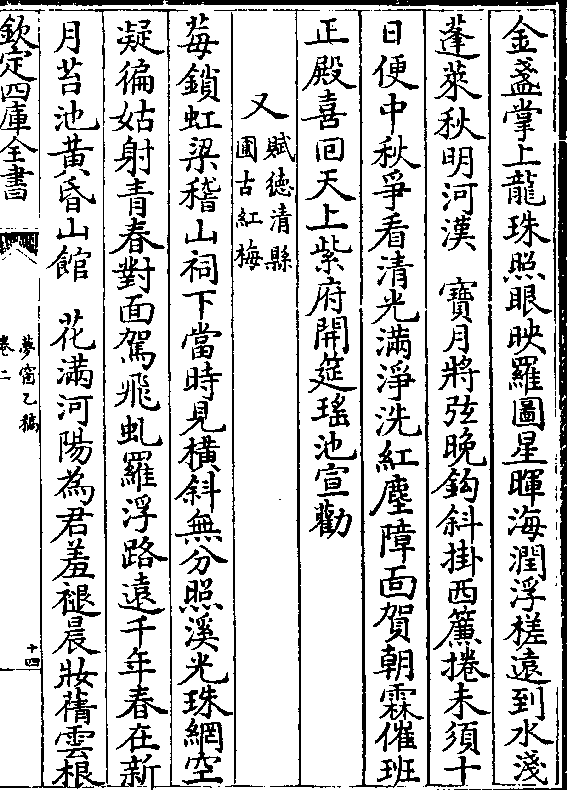 金盞掌上龍珠照眼映羅圖星暉海潤浮槎遠到水淺
蓬萊秋明河漢　寶月將弦晚鈎斜掛西簾捲未須十
日便中秋爭看清光滿淨洗紅塵障面賀朝霖催班
正殿喜回天上紫府開筵瑤池宣勸
又賦徳清縣圃古紅梅
莓鎖虹梁稽山祠下當時見橫斜無分照溪光珠網空
凝徧姑射青春對面駕飛虬羅浮路遠千年春在新
月苔池黃昏山館　花滿河陽為君羞褪晨妝蒨雲根
欽定四庫全書
夢窗乙稿
卷二
十四